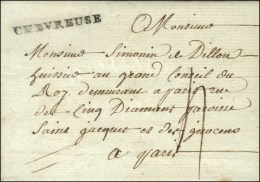 CHEVREUSE
Monsieur
Monsieur Simonin de Dillon
huissier au grand Conseil du
Roy demeurant a paris rue
des Cinq Diamant paroisse
Saint jacques es des
a paris